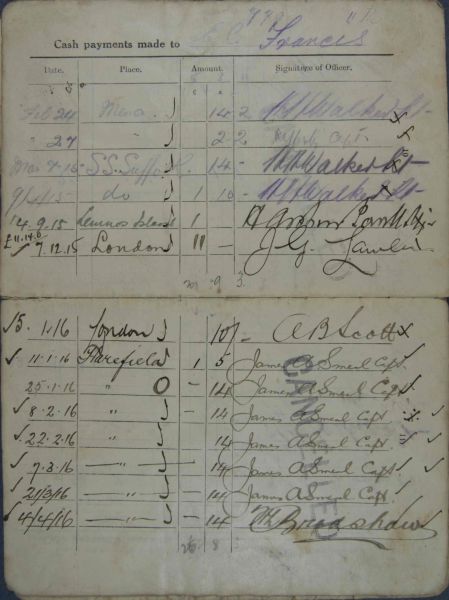 Cash payments made to E C Francis
Date. Place. Amount. Signature of Officer.
Feb 24 Mena 14 2 Walker Lt
" 27 " 2 2 Capt
Mar 9-15 S.S. Suffolk 14 - Walker Lt
9/4/15 do 1 10 Walker Lt
14.9.15 Lemnos Island 1
£11.14.6
7.12.15 London 11 - J. G. Lawler
9 3
15.1.16 London 10/- A B Scott
11.1.16 Harefield 1 5 James A Smeal Capt.
25.1.16 " - 14 James A Smeal Capt
8.2.16 " - 14 James A Smeal Capt
22.2.16 " 14 James A Smeal Capt.
7.3.16 " 14 James A Smeal Capt.
21/3/16 " - 14 James A Smeal Capt
4/4/16 " - 14 Bradshaw
CANCELLED